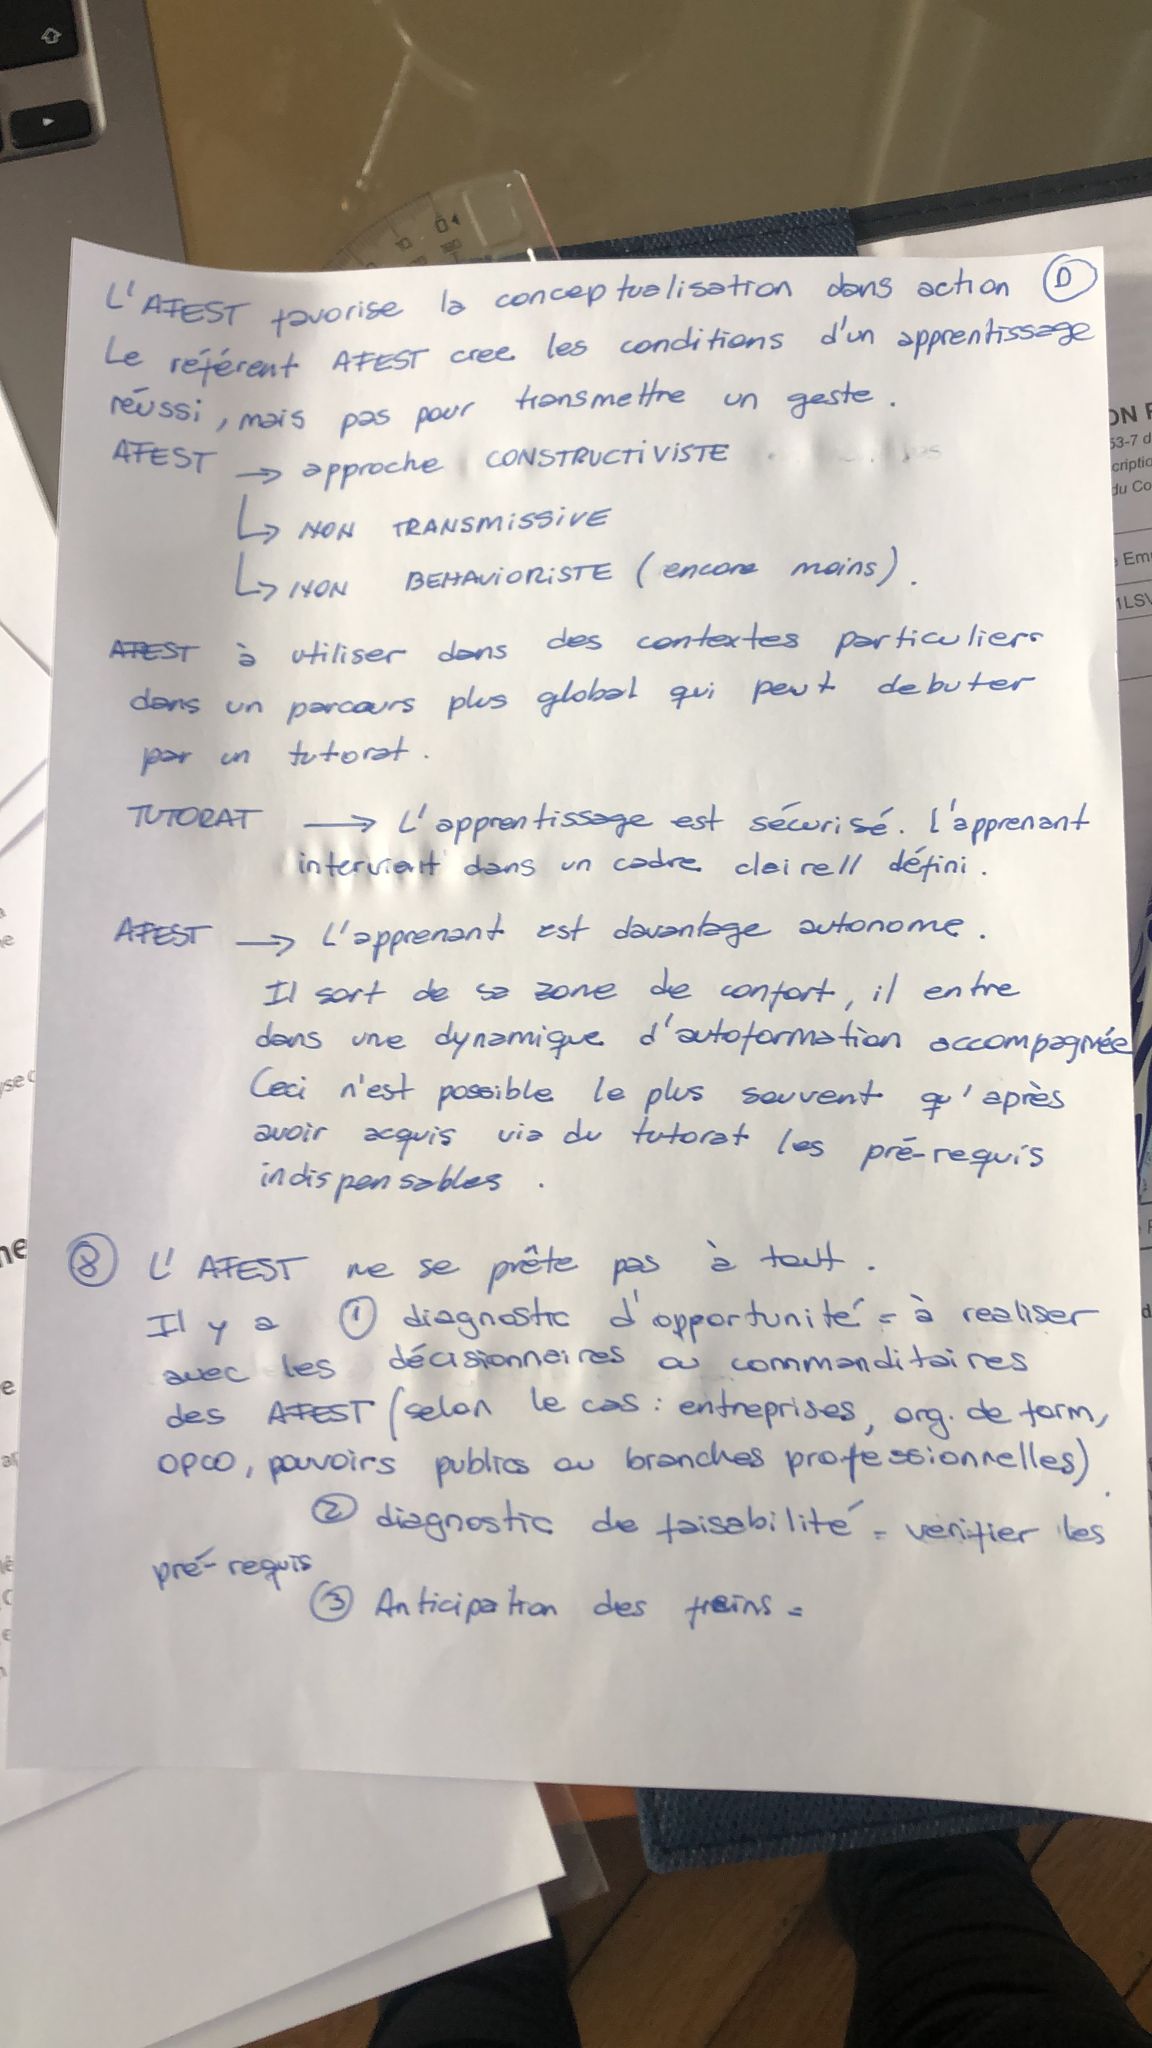 L'AFEST favorise la conceptualisation dans action D
Le référent AFEST cree les conditions d'un apprentissage
réussi, mais pas pour transmettre un geste.
AFEST → approche CONSTRUCTIVISTE
↳ NON TRANSMISSIVE
↳ NON BEHAVIORISTE (encore moins).
AFEST à utiliser dans des contextes particuliers
dans un parcours plus global qui peut debuter
par un tutorat.
TUTORAT → L'apprentissage est sécurisé. L'apprenant
intervient dans un cadre claire// défini.
AFEST → L'apprenant est davantage autonome.
Il sort de sa zone de confort, il entre
dans une dynamique d'autoformation accompagnée
Ceci n'est possible le plus souvent qu'après
avoir acquis via du tutorat les pré-requis
indispensables.
8 L'AFEST ne se prête pas à tout.
Il y a 1 diagnostic d'opportunité = à realiser
avec les décisionnaires ou commanditaires
des AFEST (selon le cas : entreprises, org. de form,
OPCO, pouvoirs publics ou branches professionnelles).
2 diagnostic de faisabilité = verifier les
pré-requis
3 Anticipation des freins =
ON
53-7 d
criptio
du Co
Em
1LSV